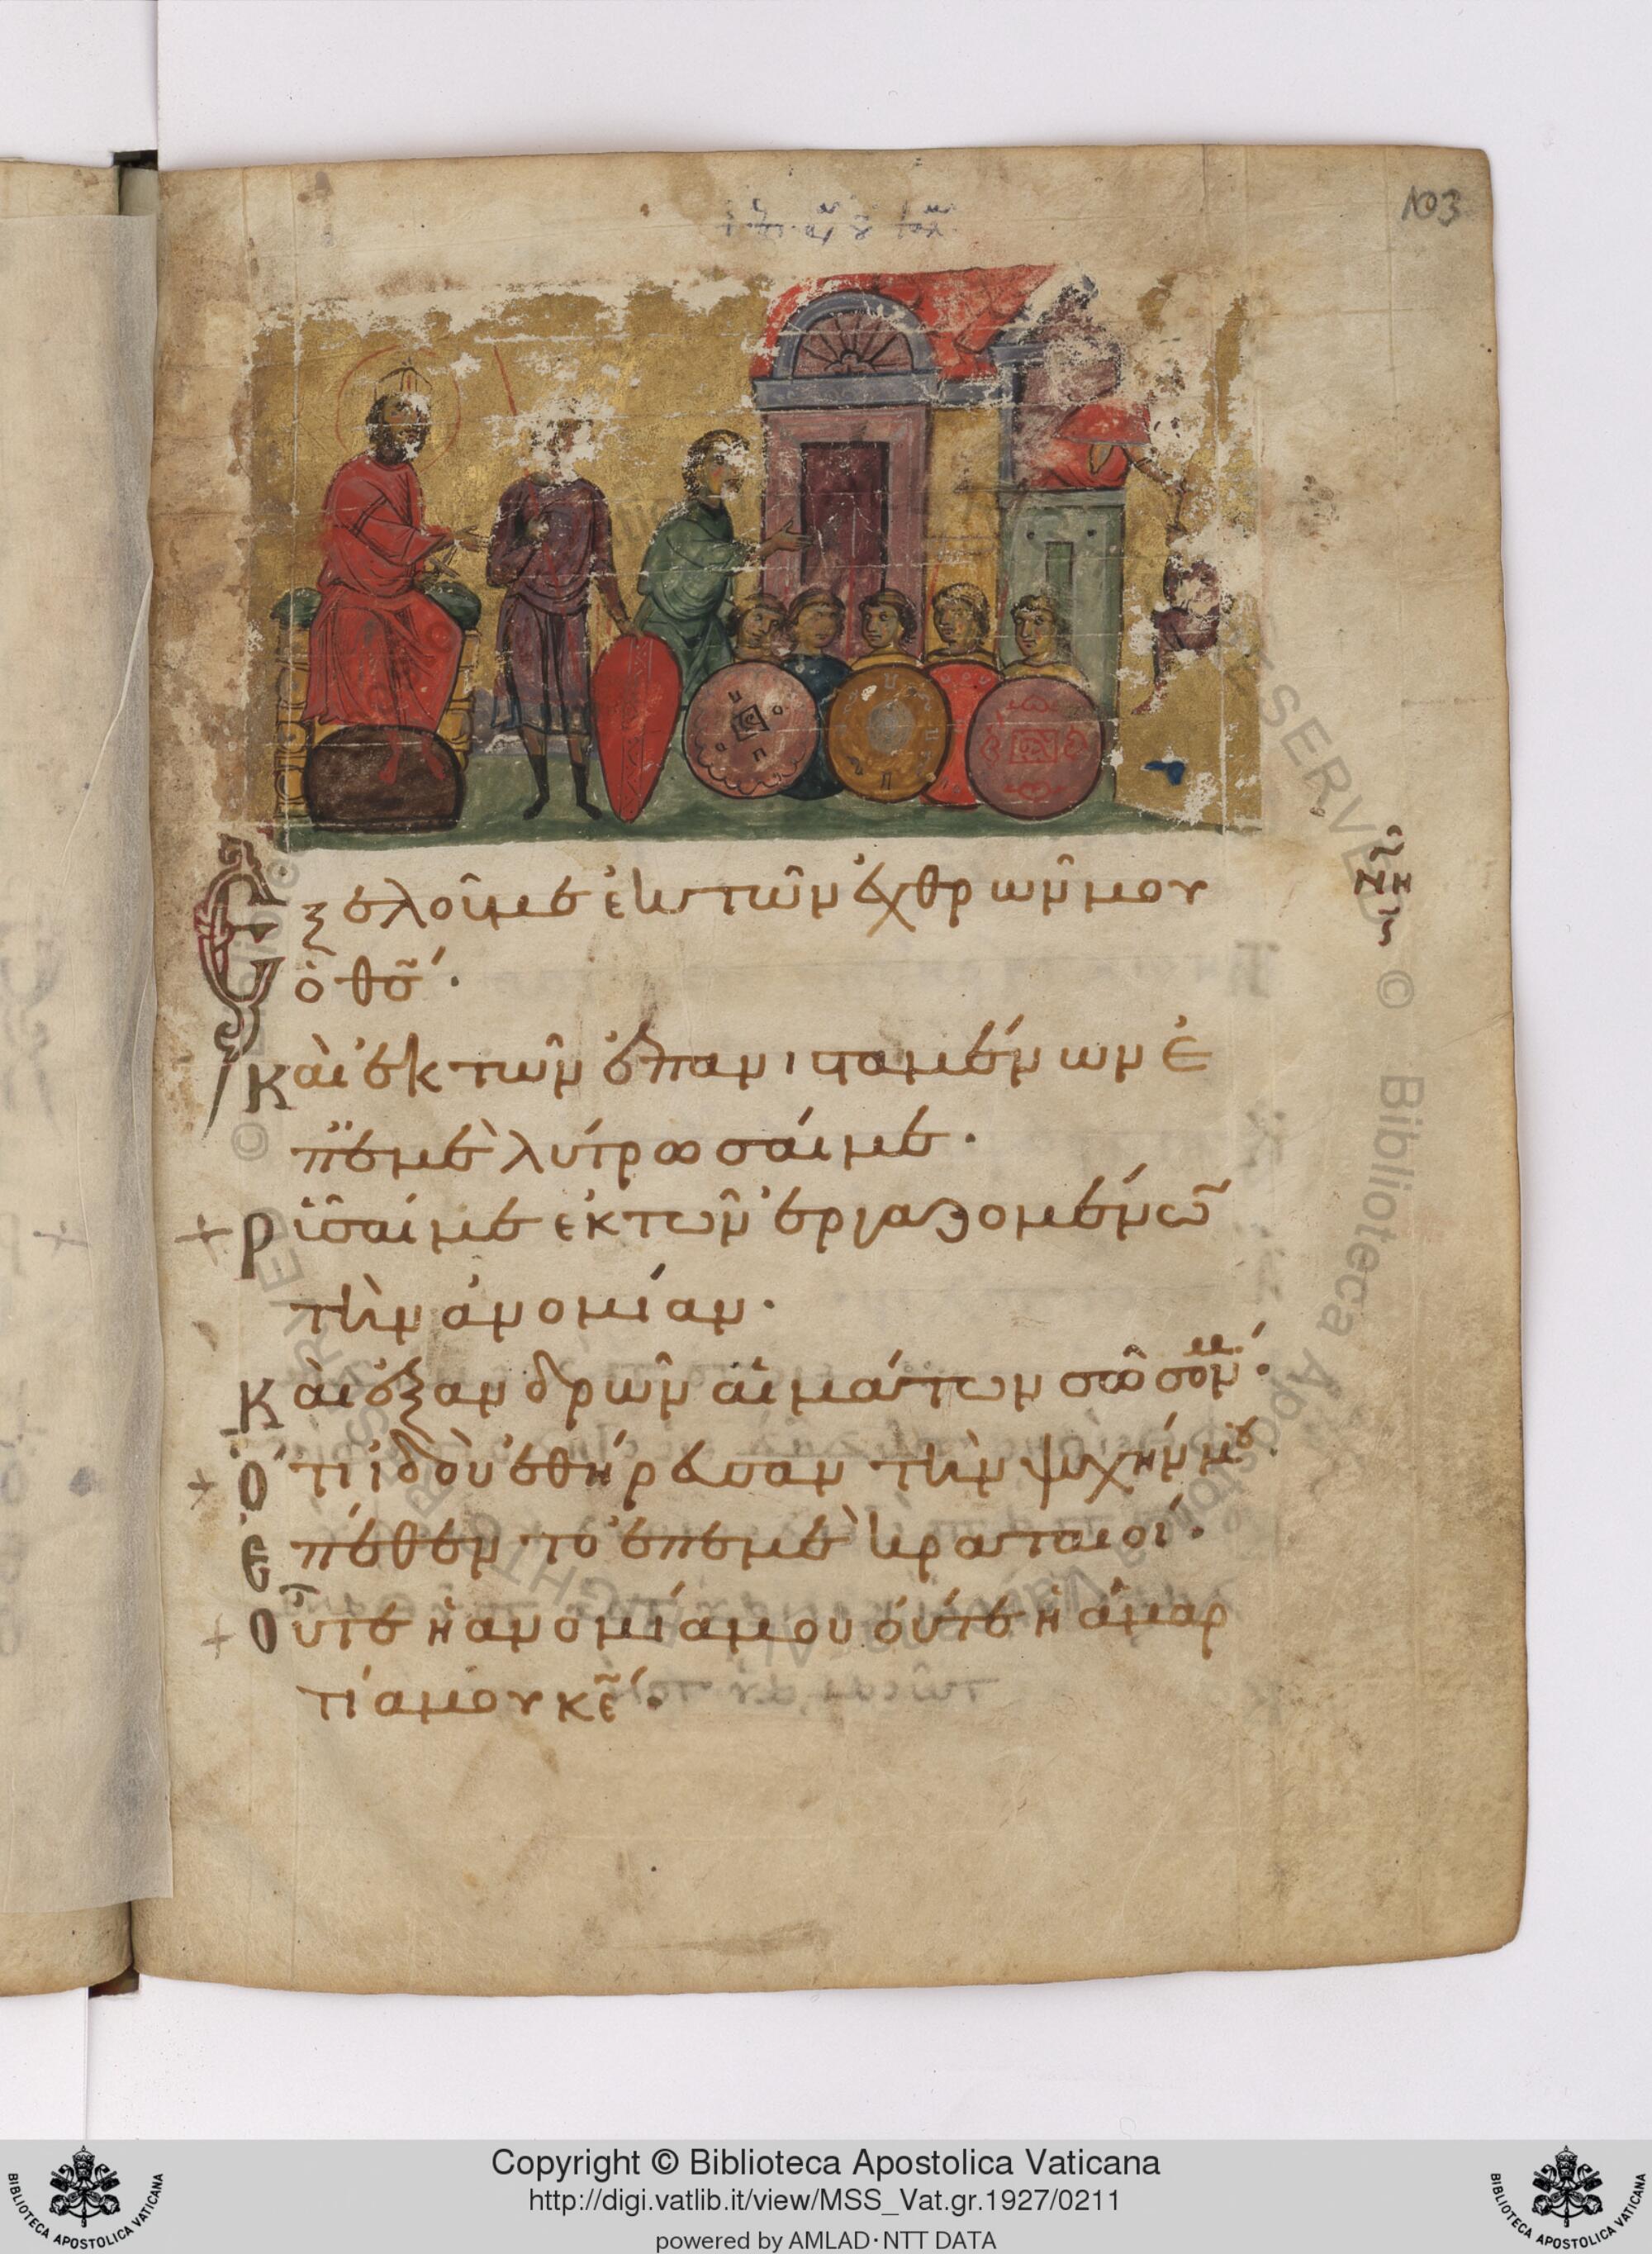 103
Ἐξελοῦ με ἐκ τῶν ἐχθρῶν μου
ὁ θς̃·
Καὶ ἐκ τῶν ἐπανιϲταμένων ἐ
π᾿ ἐμὲ λύτρωσαί με·
Ῥῦσαί με ἐκ τῶν ἐργαζομένω̃
τὴν ἀνομίαν·
Καὶ ἐξ ἀνδρῶν αἱμάτων σῶσόν με·
Ὅτι ἰδοὺ ἐθήρευσαν τὴν ψυχήν μου
Ἐπέθεντο ἐπ ἐμὲ κραταιοί·
Οὔτε ἡ ἀνομία μου οὔτε ἡ ἁμαρ
τία μου κε̃·
RESERVED © Biblioteca Apostolica Vaticana
Copyright © Biblioteca Apostolica Vaticana
http://digi.vatlib.it/view/MSS_Vat.gr.1927/0211
powered by AMLAD·NTT DATA
BIBLIOTECA APOSTOLICA VATICANA
BIBLIOTECA APOSTOLICA VATICANA